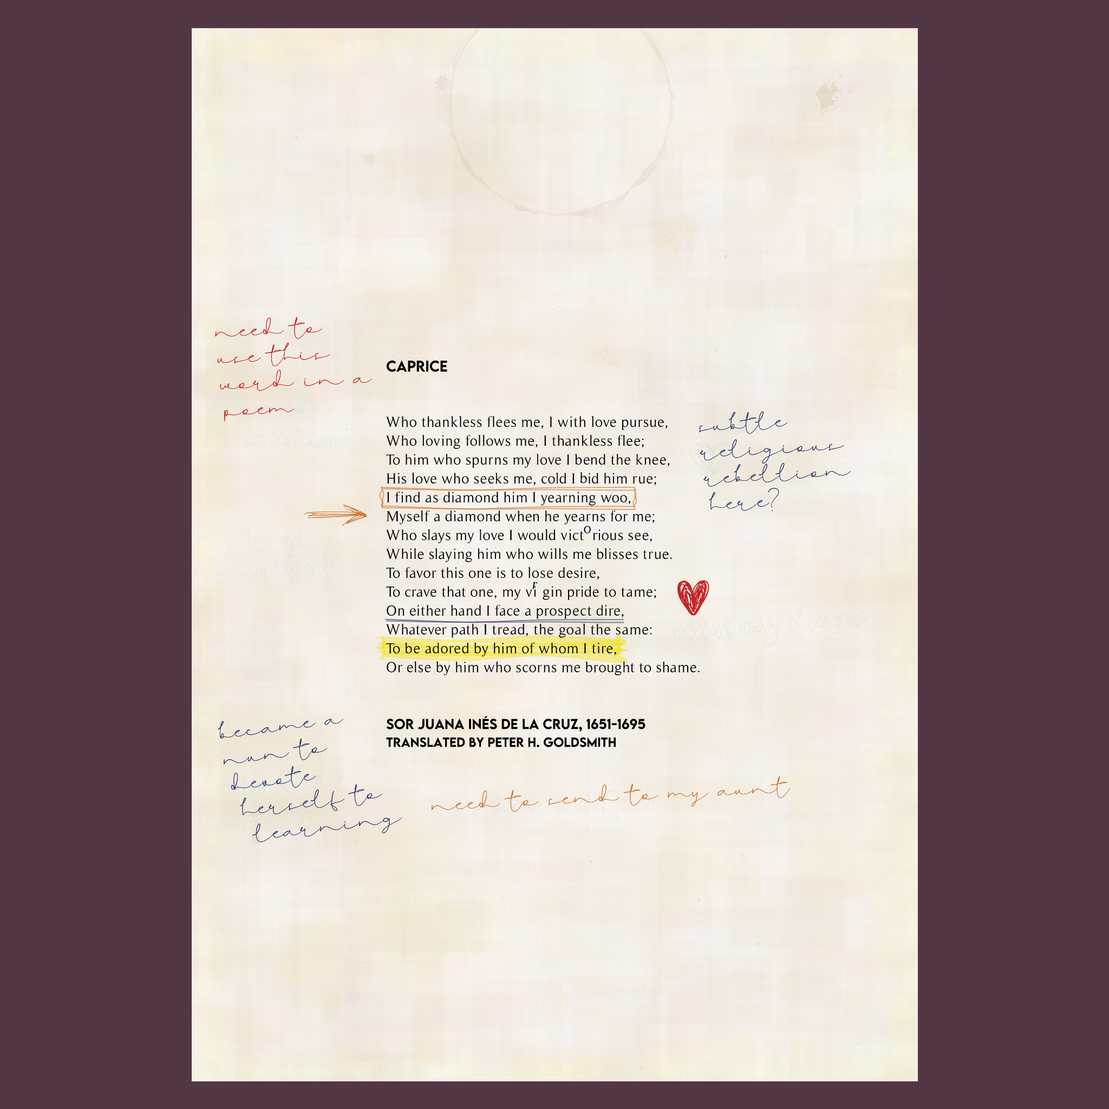 need to
use this
word in a
poem
CAPRICE
Who thankless flees me, I with love pursue,
Who loving follows me, I thankless flee;
To him who spurns my love I bend the knee,
His love who seeks me, cold I bid him rue;
I find as diamond him I yearning woo,
Myself a diamond when he yearns for me;
Who slays my love I would victorious see,
While slaying him who wills me blisses true.
To favor this one is to lose desire,
To crave that one, my virgin pride to tame;
On either hand I face a prospect dire,
Whatever path I tread, the goal the same:
To be adored by him of whom I tire,
Or else by him who scorns me brought to shame.
subtle
religious
rebellion
here?
brilliant usage of commas
SOR JUANA INÉS DE LA CRUZ, 1651-1695
TRANSLATED BY PETER H. GOLDSMITH
became a
nun to
devote
herself to
learning
need to send to my aunt